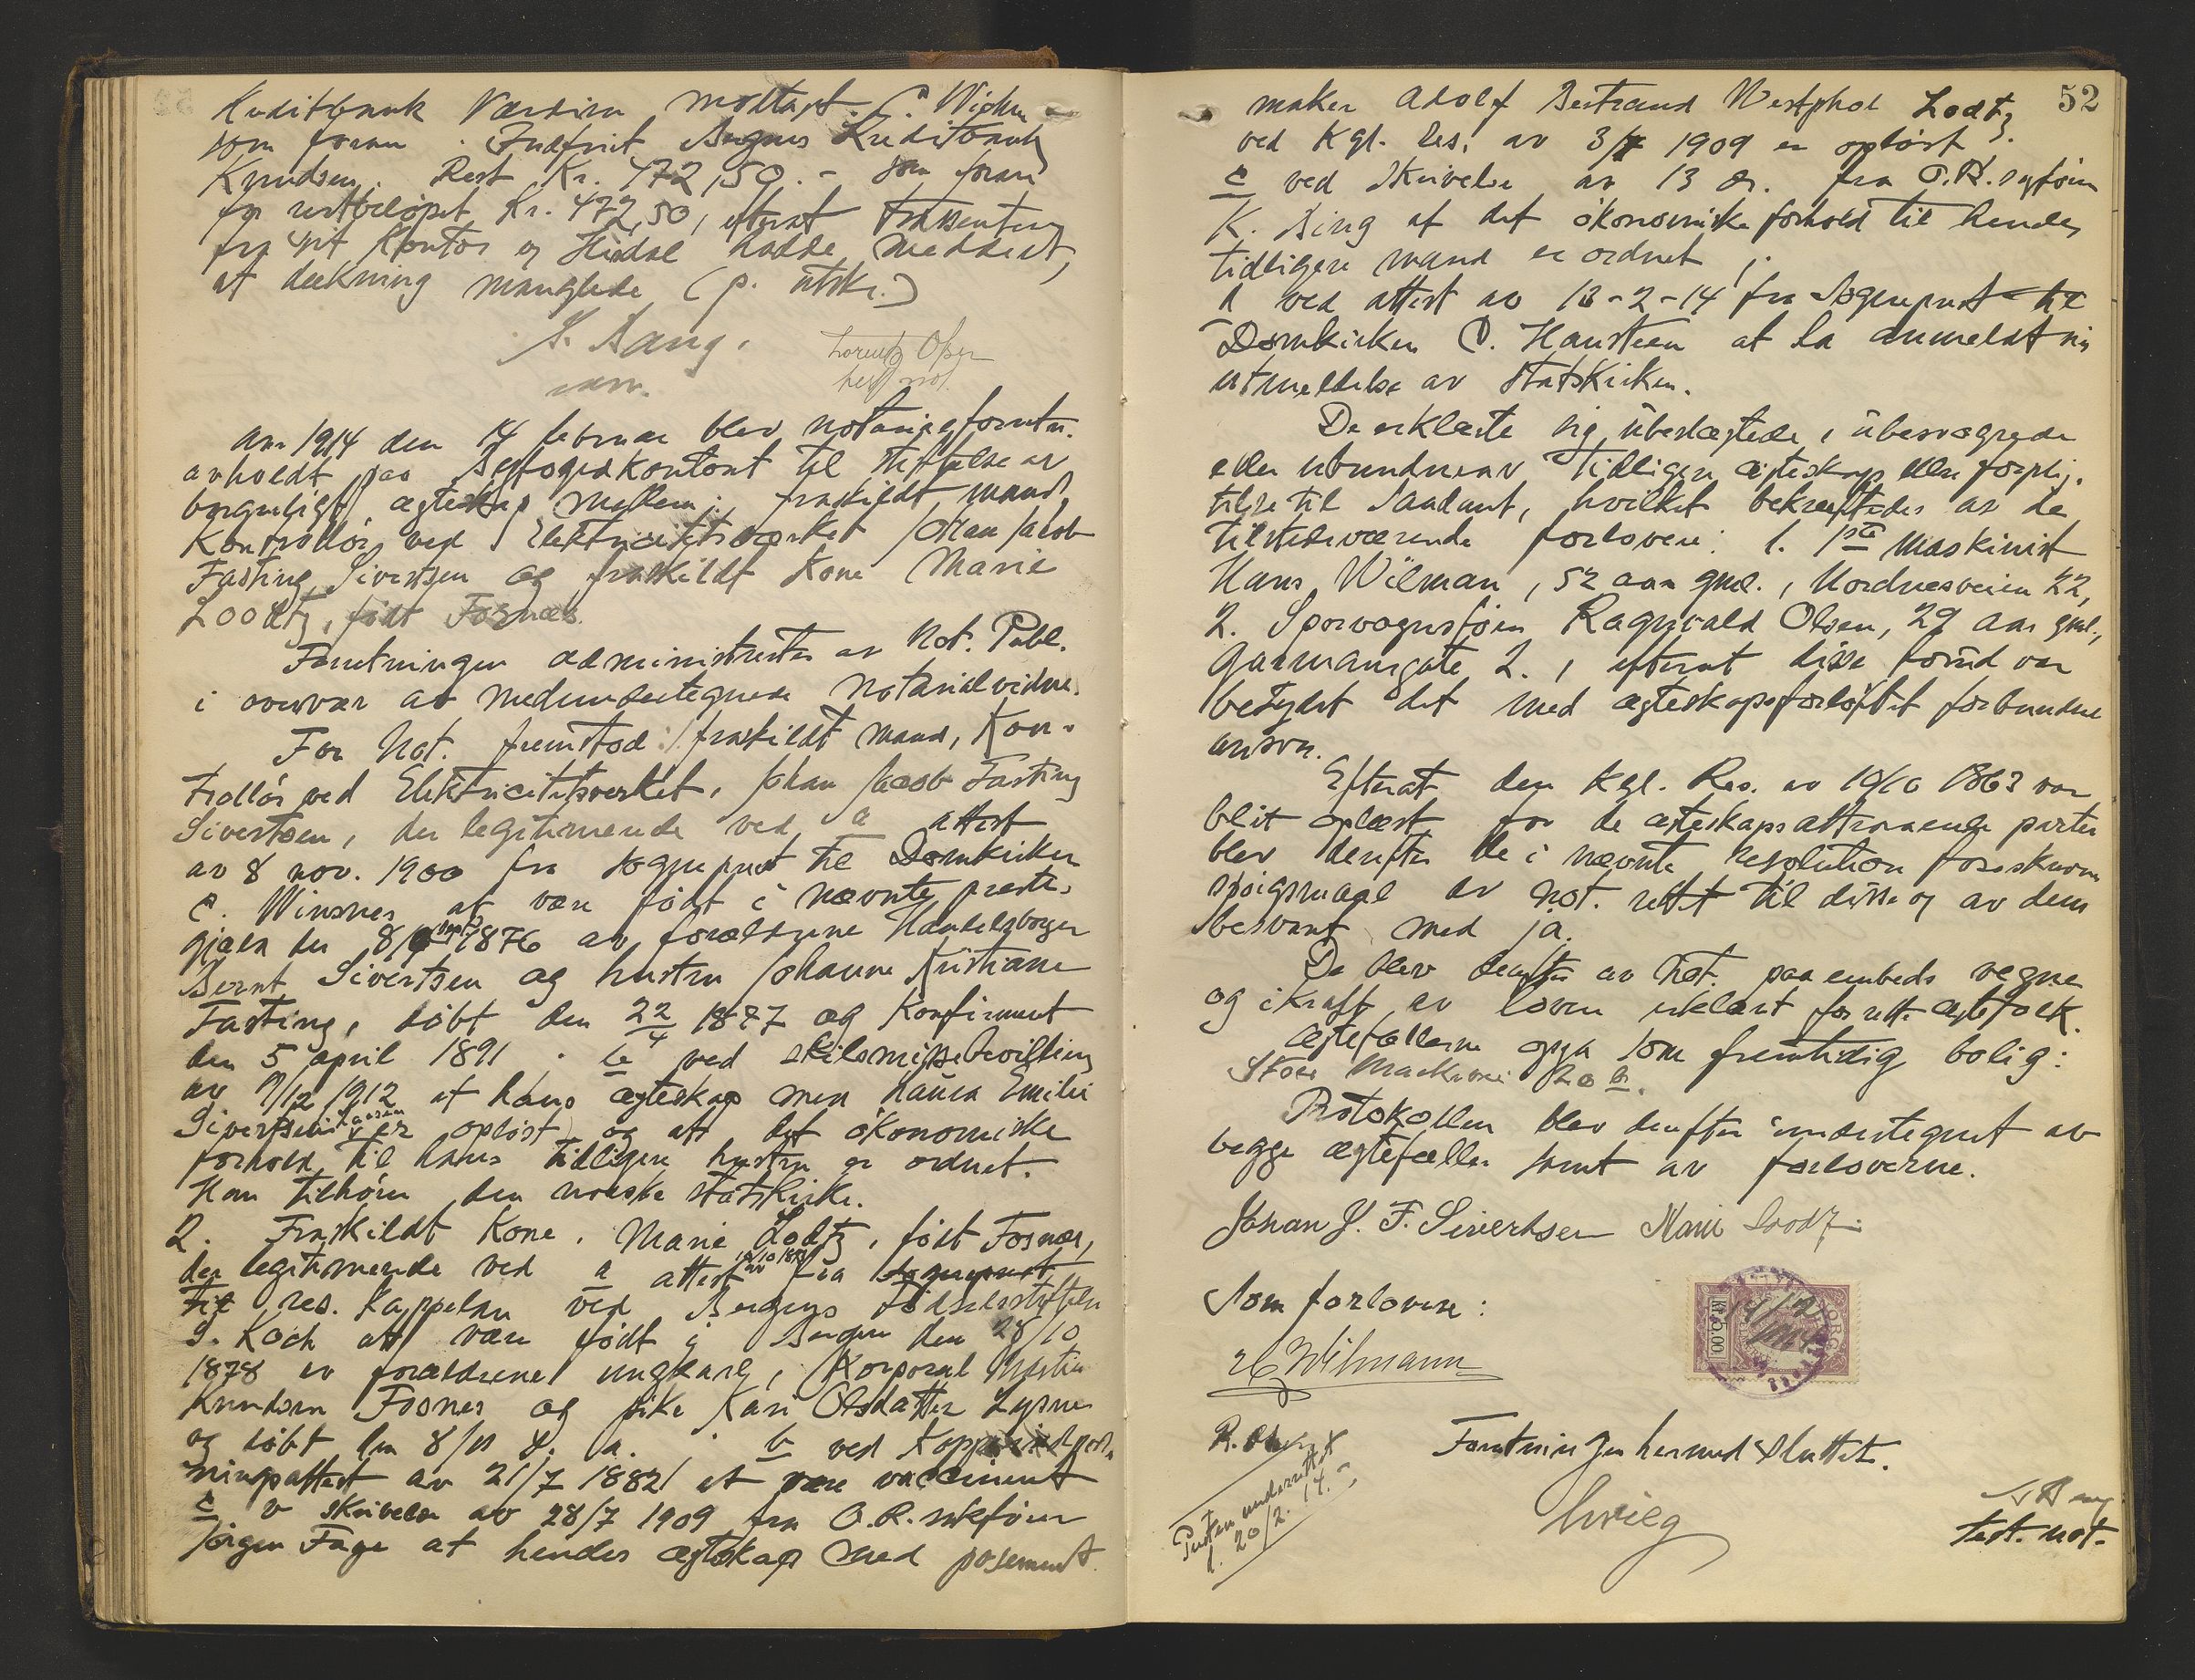 Kreditbank Værdien mottagt. C. Wichm
som foran. Indfriet Bergens Kreditbank
Knudsen. Rest Kr. 472,50.- som foran
for restbeløpet Kr. 472,50, efterat trassenten
fra sit Kontor og Hisdal hadde meddelt,
at dækning manglede (p. utskr.)
S. Bang.
Lorentz Olsen
test. not.
Aar 1914 den 14 februar blev notarialforretn.
avholdt paa Byfogedkontoret til stiftelse av
borgerligt ægteskap mellem: fraskildt mand,
Kontrollør ved Elektricitetsverket Johan Jacob
Fasting Sivertsen og fraskildt Kone Marie
Loodtz, født Fosnæs.
Forretningen administrertes av Not. Publ.
i overvær av medundertegnede notarialvidne.
For Not. fremstod: 1. fraskildt mand, Kon-
trollør ved Elektricitetsverket, Johan Jacob Fasting
Sivertsen, der legitimerede ved a attest
av 8 nov. 1900 fra sogneprest til Domkirken
C. Winsnes at være født i nævnte preste-
gjæld den 8/9 sept. 1876 av forældrene Handelsborger
Bernt Sivertsen og hustru Johanne Kristiane
Fasting, døbt den 22/4 1877 og Konfirmert
den 5 april 1891. b ved skilsmissebevilling
av 9/12 1912 at hans ægteskap med Laura Emilie
Sivertsen f. Larsen er opløst og at det økonomiske
forhold til hans tidligere hustru er ordnet.
Han tilhører den norske statskirke.
2. Fraskildt Kone, Marie Lodtz, født Fosnæs,
der legitimerede ved a attest av fra sogneprest
til res. kappelan ved Bergens Fødselsstiftelse
S. Koch at være født i Bergen den 28/10
1878 av forældrene ungkarl, Korporal Martin
Knudsen Fosnes og pike Kari Olsdatter Lysnes
og døbt den 8/11 s. a. b ved Koppeindpod-
ningsattest av 21/7 1882 at være vaccineret
c v skrivelse av 28/7 1909 fra O.R. sakfører
Jørgen Fage at hendes ægteskap med posement-
52
maker Adolf Bertrand Westphal Lodtz
ved Kgl. Res. av 3/7 1909 er opløst.
c ved skrivelse av 13 ds. fra O.R. sagfører
K. Bing at det økonomiske forhold til hendes
tidligere mand er ordnet.
d ved attest av 13-2-14 fra sogneprest til
Domkirken C. Hansteen at ha anmeldt sin
utmeldelse av Statskirken.
De erklærte sig ubeslægtede, ubesvogrede
eller ubundne av tidligere ægteskap eller forplig-
telse til saadant, hvilket bekræftedes av de
tilstedeværende forlovere: 1. 1ste Maskinist
Hans Wilman, 52 aar gml., Nordnesveien 22,
2. Sporvognsfører Ragnvald Olsen, 29 aar gml.,
Garmansgate 2., efterat disse forud var
betydet det med ægteskapsforløftet forbundne
ansvar.
Efterat den Kgl. Res. av 19/10 1863 var
blit oplæst for de ægteskapsattraaende parter
blev derefter de i nævnte resolution foreskrevne
spørgsmaal av Not. rettet til disse og av dem
besvart med ja.
De blev derefter av Not. paa embeds vegne
og i kraft av loven erklært for rette ægtefolk.
Ægtefællerne opga som fremtidig bolig:
Store Markevei 20 b.
Protokollen blev derefter undertegnet av
begge ægtefæller samt av forloverne.
Johan J. F. Sivertsen Marie Loodtz.
Som forlovere:
H Wilmann
R. Olsen
14/2 1914
Kr. 5.00
Forretningen hermed sluttet.
Presten underrettet
d. 20/2. 14.
Grieg
S Bang
test. not.